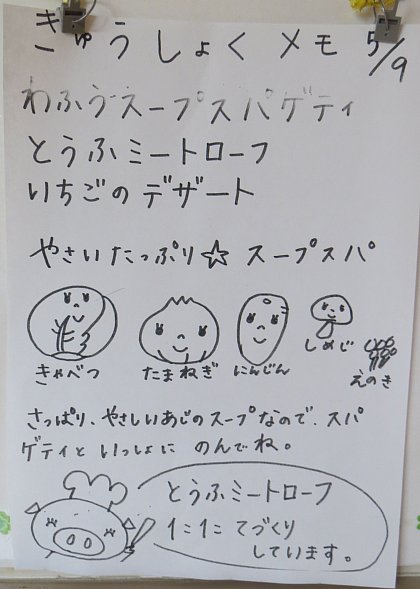 きゅうしょくメモ 5/9
わふうスープスパゲティ
とうふミートローフ
いちごのデザート
やさいたっぷり☆スープスパ
きゃべつ たまねぎ にんじん しめじ えのき
さっぱり、やさしいあじのスープなので、スパ
ゲティといっしょに のんでね。
とうふミートローフ
1こ1こ てづくり
しています。